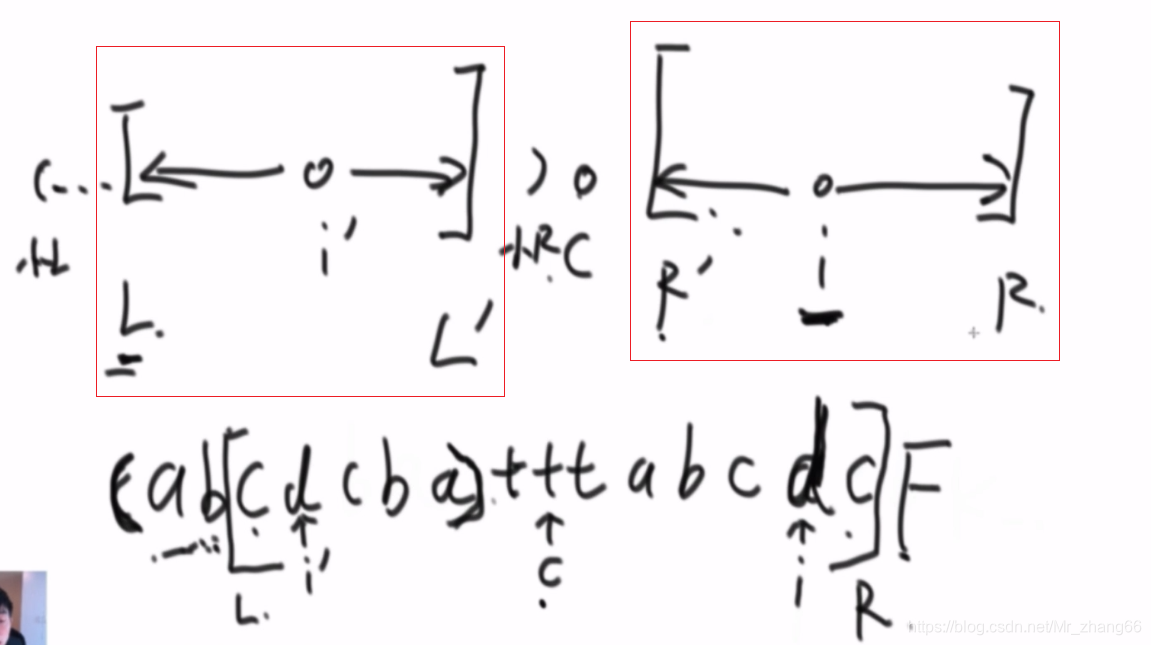 (... [ o ] ) o [ o ]
i' C i
L. L' R' R.
( a b [ c d c b a ) t t t a b c d c ] F
i' c i
L. R
https://blog.csdn.net/Mr_zhang66